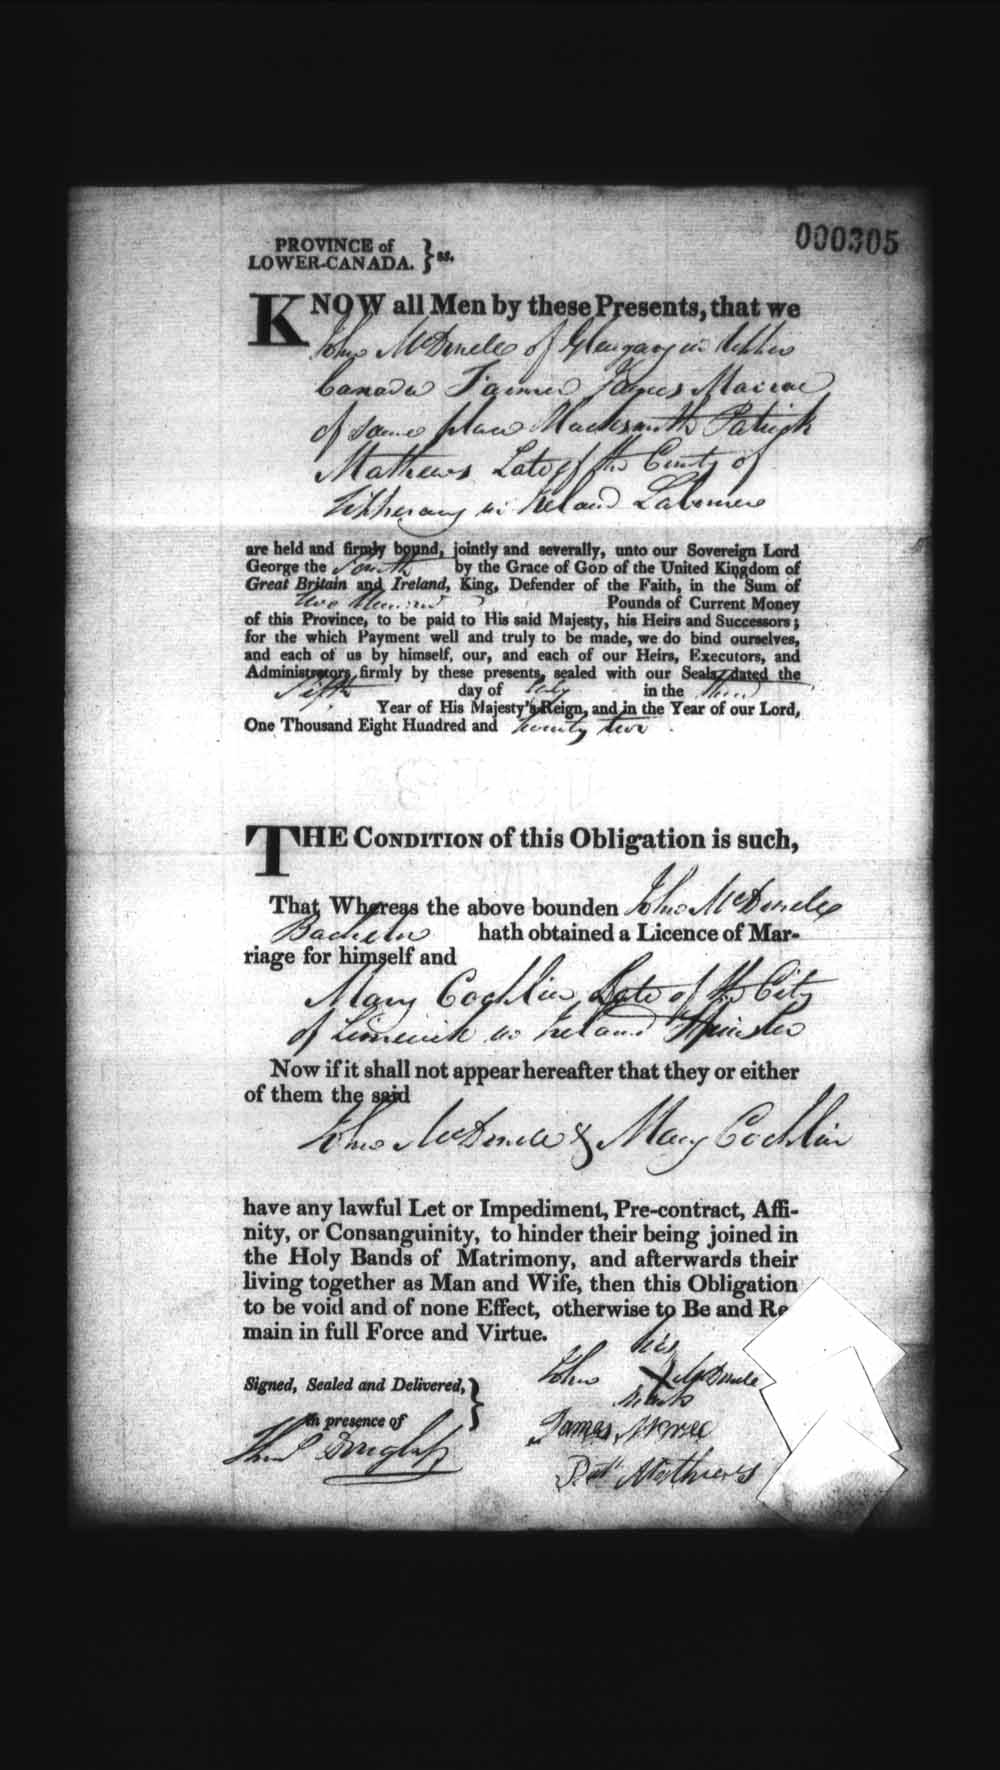 000305
PROVINCE of
LOWER-CANADA. } ss.
KNOW all Men by these Presents, that we
John McDonele of Glengary in Upper
Canada Farmer James Macrae
of same place Blacksmith Patrick
Mathews Late of the County of
Tipperary in Ireland Labourer
are held and firmly bound, jointly and severally, unto our Sovereign Lord
George the Fourth by the Grace of GOD of the United Kingdom of
Great Britain and Ireland, King, Defender of the Faith, in the Sum of
Two Hundred Pounds of Current Money
of this Province, to be paid to His said Majesty, his Heirs and Successors;
for the which Payment well and truly to be made, we do bind ourselves,
and each of us by himself, our, and each of our Heirs, Executors, and
Administrators firmly by these presents, sealed with our Seals, dated the
Fifth day of July in the Third
Year of His Majesty's Reign, and in the Year of our Lord,
One Thousand Eight Hundred and twenty two.
THE CONDITION of this Obligation is such,
That Whereas the above bounden John McDonele
Bachelor hath obtained a Licence of Mar-
riage for himself and
Mary Cochlin Late of the City
of Limerick in Ireland Spinster
Now if it shall not appear hereafter that they or either
of them the said
John McDonele & Mary Cochlin
have any lawful Let or Impediment, Pre-contract, Affi-
nity, or Consanguinity, to hinder their being joined in
the Holy Bands of Matrimony, and afterwards their
living together as Man and Wife, then this Obligation
to be void and of none Effect, otherwise to Be and Re
main in full Force and Virtue.
his
John X McDonele
mark
Signed, Sealed and Delivered,
in presence of
James McRae
Patt Mathews